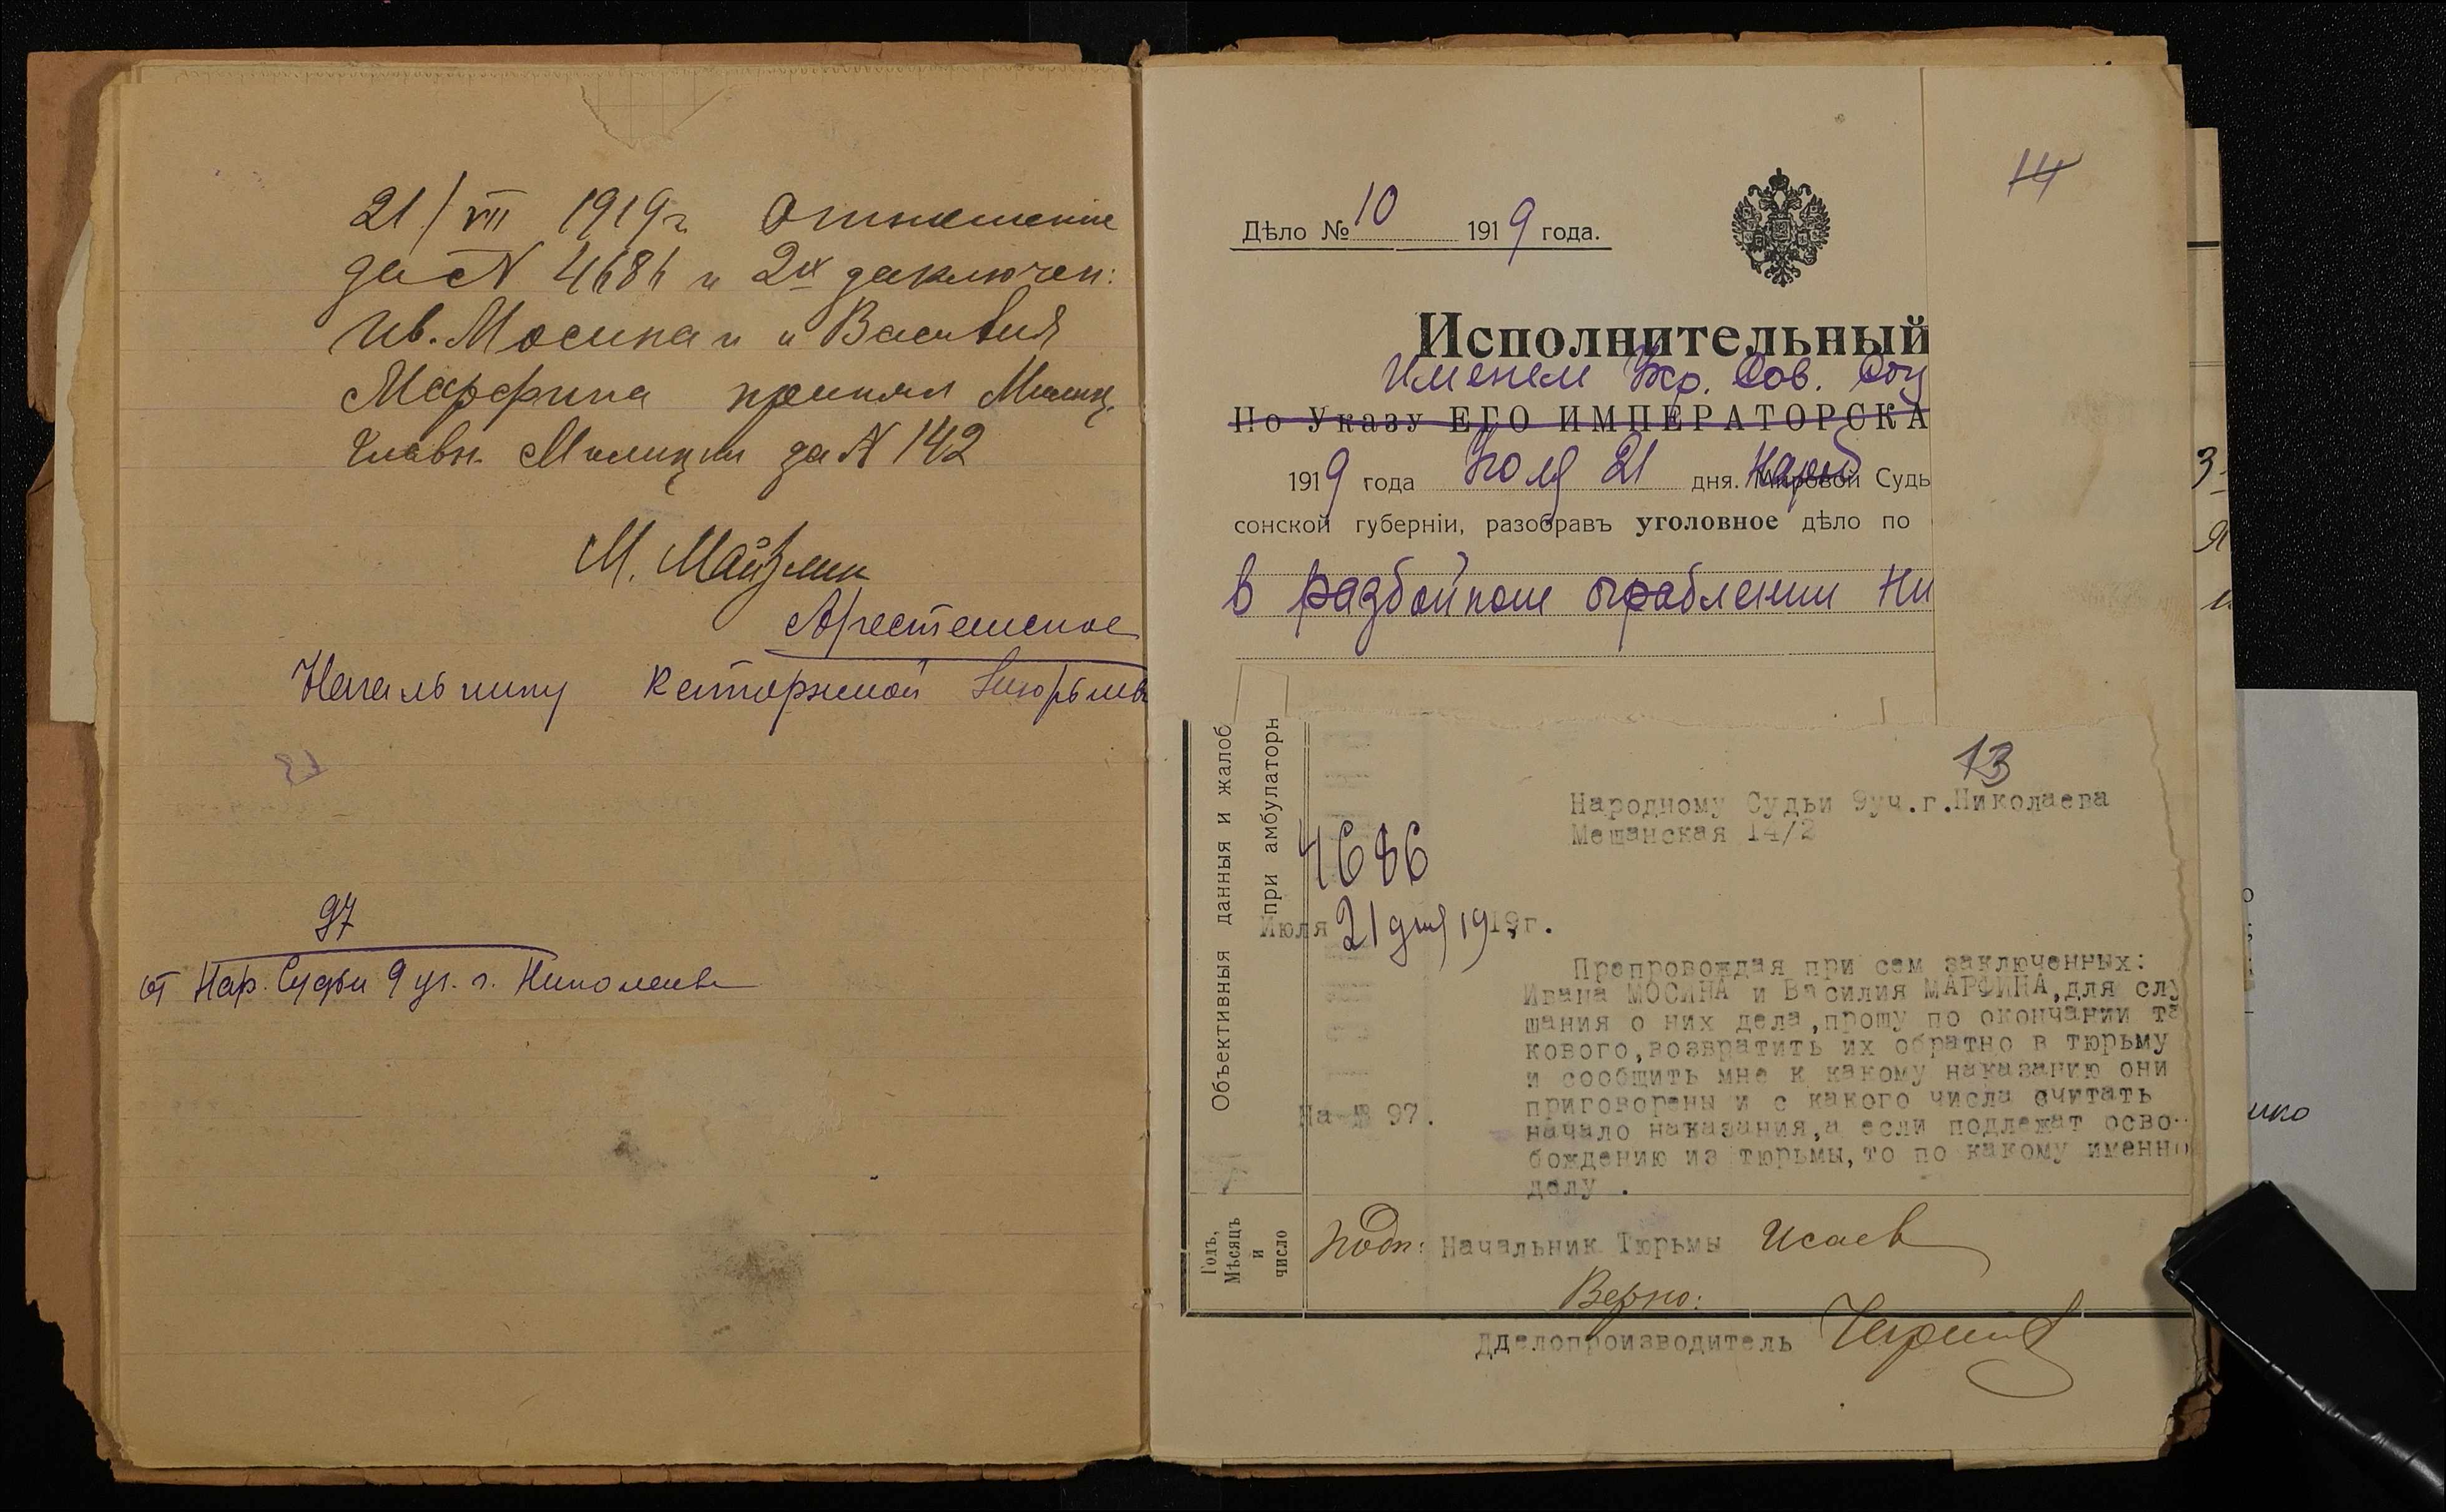 21/VII 1919 г. Отношение
за № 4686 и 2х заключен:
Ив. Мосина и Василия
Марфина принял Милиц.
Главн. Милиции за № 142
М. Майзлин
Арестантское
Начальнику каторжной тюрьмы
97
от Нар. Судьи 9 уч. г. Николаева
14
Дѣло № 10 1919 года.
Исполнительный
Именем Укр. Сов. Соц
По Указу ЕГО ИМПЕРАТОРСКА
1919 года Июля 21 дня. Народ Судь
сонской губерніи, разобравъ уголовное дѣло по
в разбойном ограблении Ни
13
Народному Судьи 9уч.г.Николаева
Мещанская 14/2
4686
Июля 21 дня 1919г.
Препровождая при сем заключенных:
Ивана МОСИНА и Василия МАРФИНА,для слу
шания о них дела,прошу по окончании та
кового,возвратить их обратно в тюрьму
и сообщить мне к какому наказанию они
На № 97.
приговорены и с какого числа считать
начало наказания,а если подлежат осво-
бождению из тюрьмы,то по какому именно
делу .
Подп: Начальник Тюрьмы Исаев
Верно:
Дделопроизводитель
Объективныя данныя и жалоб
при амбулаторн
Годъ,
Мѣсяцъ
и
число